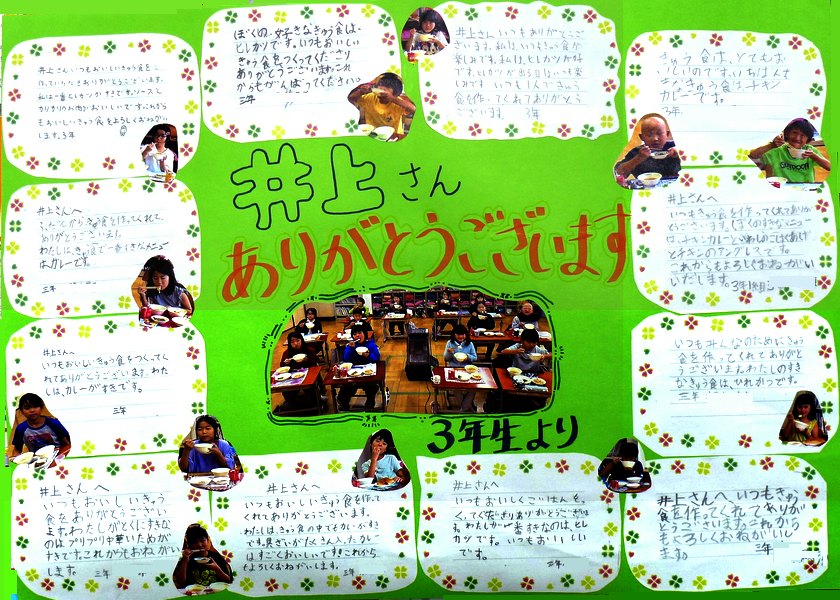 井上さん
ありがとうございます
3年生より
井上さん いつもおいしいきゅう食を
作っていただきありがとうございます。
もおいしいきゅう食をよろしくおねがい
します。3年
ぼくの、好きなきゅう食は、
ヒレカツです。いつもおいしい
きゅう食をつくってくださり
ありがとうございます。これ
からもがんばってください。
三年
井上さんいつもありがとうご
ざいます。私は、いつもきゅう食が
楽しみです。私は、ヒレカツが好
です。ヒレカツが出る日はいつも楽
しみです。いつも1人できゅう
食を作ってくれてありがとう
ございます。 3年
きゅう食は、とてもお
いしいのです。いちばんす
きなきゅう食はチキン
カレーです。
3年
井上さんへ
きゅう食を作ってくれて、
ありがとうございます。
わたしは、きゅう食で一番すきなメニュー
は、カレーです。
三年
井上さんへ
いつもきゅう食を作ってくれてありが
とうございます。ぼくのすきなメニュー
は、チキンカレーと
とチキンの
これからもよろしくおねがい
いたします。 3年
井上さんへ
いつもおいしいきゅう食をつくってく
れてありがとうございます。わた
しは、カレーがすきです。
三年
いつもみんなのためにきゅう
食を作ってくれてありがと
うございます。わたしのすき
なきゅう食は、ひれかつです。
三年
井上さんへ
いつもおいしいきゅう
食をありがとうござい
ます。わたしがとくにすきな
のは、プリプリ中華いためが
すきです。これからもおねがい
します。 三年
井上さんへ
いつもおいしいきゅう食を作って
くれてありがとうございます。
わたしは、きゅう食の中でもカレーがすき
です。具ざいがたくさん入ったカレー
はすごくおいしいです!これから
もよろしくおねがいします。
三年
井上さんへ
いつもおいしくごはんを、つ
くってくださりありがとうござい
ます。わたしが一番すきなのは、ヒレ
カツです。いつもおいしい
です。
三年
井上さんへ いつもきゅう
食を作ってくれてありが
とうございます。これから
もよろしくおねがいし
ます。 三年